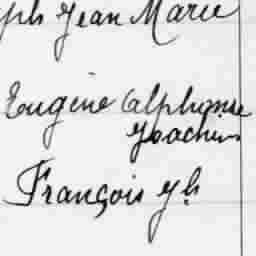 ph Jean Marie
Eugène Alphonse
Joachim
François Jh